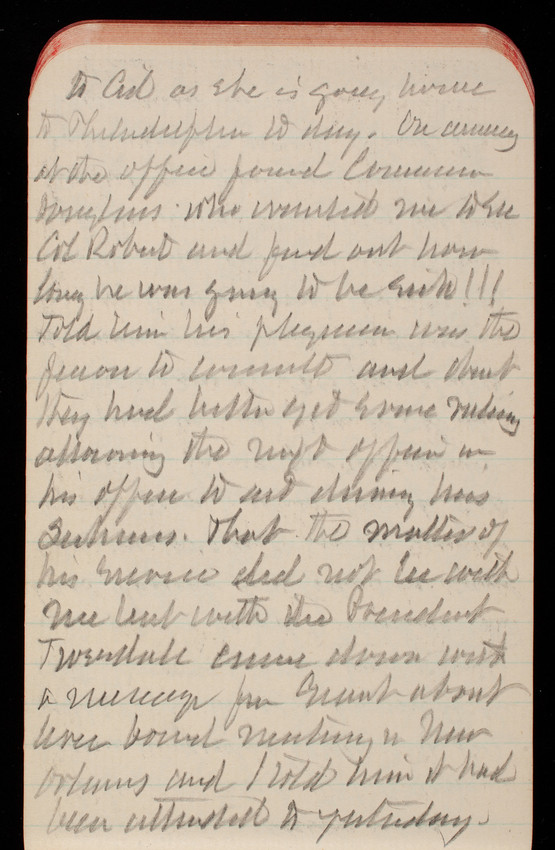 to Cid as she is going home
to Philadelphia to day. On arriving
at the office found Common
Douglass who wanted me to see
Col Robert and find out how
long he was going to be sick!!!
Told him his physician was the
person to consult and that
they had better get some ruling
allowing the next officer in
his office to act during his
sickness. That the matter of
his successor did not lie with
me but with the President
Tweedale came down with
a message from Grant about
levee board meeting in New
Orleans and I told him it had
been attended to yesterday.